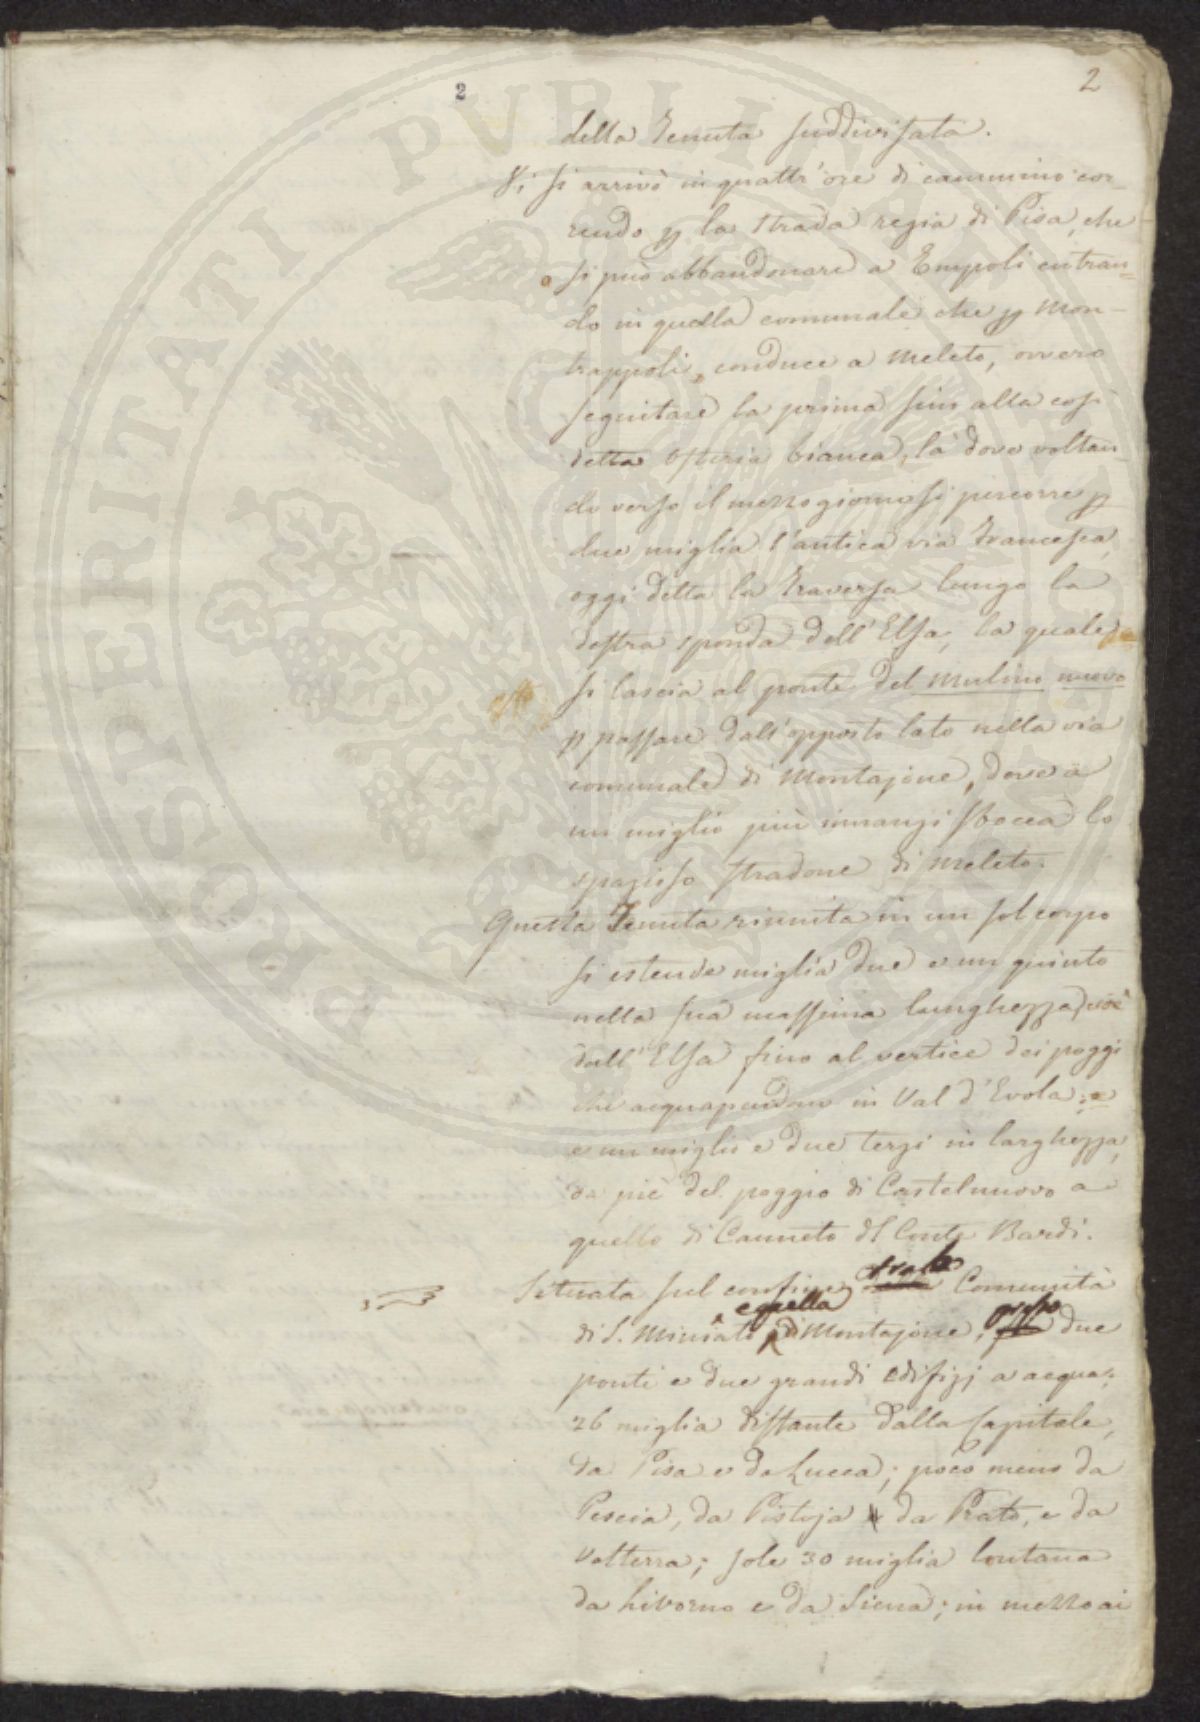 2
2
della Tenuta suddivisata.
Vi si arrivò in quattr'ore di cammino cor-
rendo p la strada regia di Pisa, che
si può abbandonare a Empoli entran=
do in quella comunale che p Mon-
trappoli, conduce a Meleto, ovvero
seguitare la prima fin alla così
detta Osteria bianca, là dove voltan-
do verso il mezzogiorno si percorre p
due miglia l'antica via Francesca,
oggi detta la Traversa lungo la
destra sponda dell'Elsa, la quale
si lascia al ponte del mulino nuovo
p passare dall'opposto lato nella via
comunale di Montajone, dove a
un miglio più innanzi sbocca lo
spazioso stradone di Meleto.
Questa Tenuta riunita in un sol corpo
si estende miglia due e un quinto
nella sua massima lunghezza, cioè
dall'Elsa fino al vertice dei poggi
che acquapendono in Val d'Evola;
e un miglio e due terzi in larghezza,
da piè del poggio di Castelnuovo a
quello di Canneto del Conte Bardi.
Situata sul confine tra la Comunità
di S. Miniato e quella di Montajone, presso due
ponti e due grandi edifizj a acqua;
26 miglia distante dalla Capitale,
da Pisa e da Lucca; poco meno da
Pescia, da Pistoja da Prato, e da
Volterra; sole 30 miglia lontana
da Livorno e da Siena; in mezzo ai
PROSPERITATI PVBLICAE